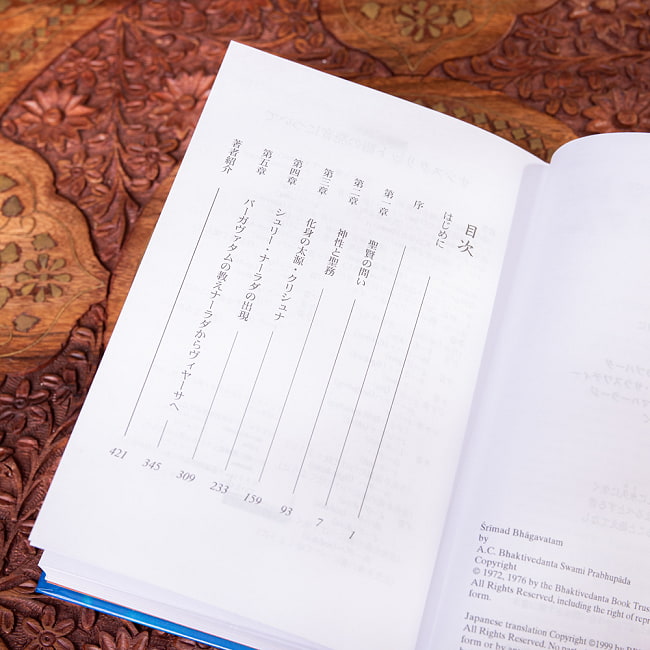 目次
はじめに 1
序 7
第一章 聖賢の問い 93
第二章 神性と聖務 159
第三章 化身の太源・クリシュナ 233
第四章 シュリー・ナーラダの出現 309
第五章 バーガヴァタムの教えナーラダからヴィヤーサへ 345
著者紹介 421
Śrimad Bhāgavatam
by
A.C. Bhaktivedanta Swami Prabhupāda
Copyright
© 1972, 1976 by the Bhaktivedanta Book Trus
All Rights Reserved, including the right of repr
form.
Japanese translation Copyright ©1999 by
All Rights Reserved. No
form or by